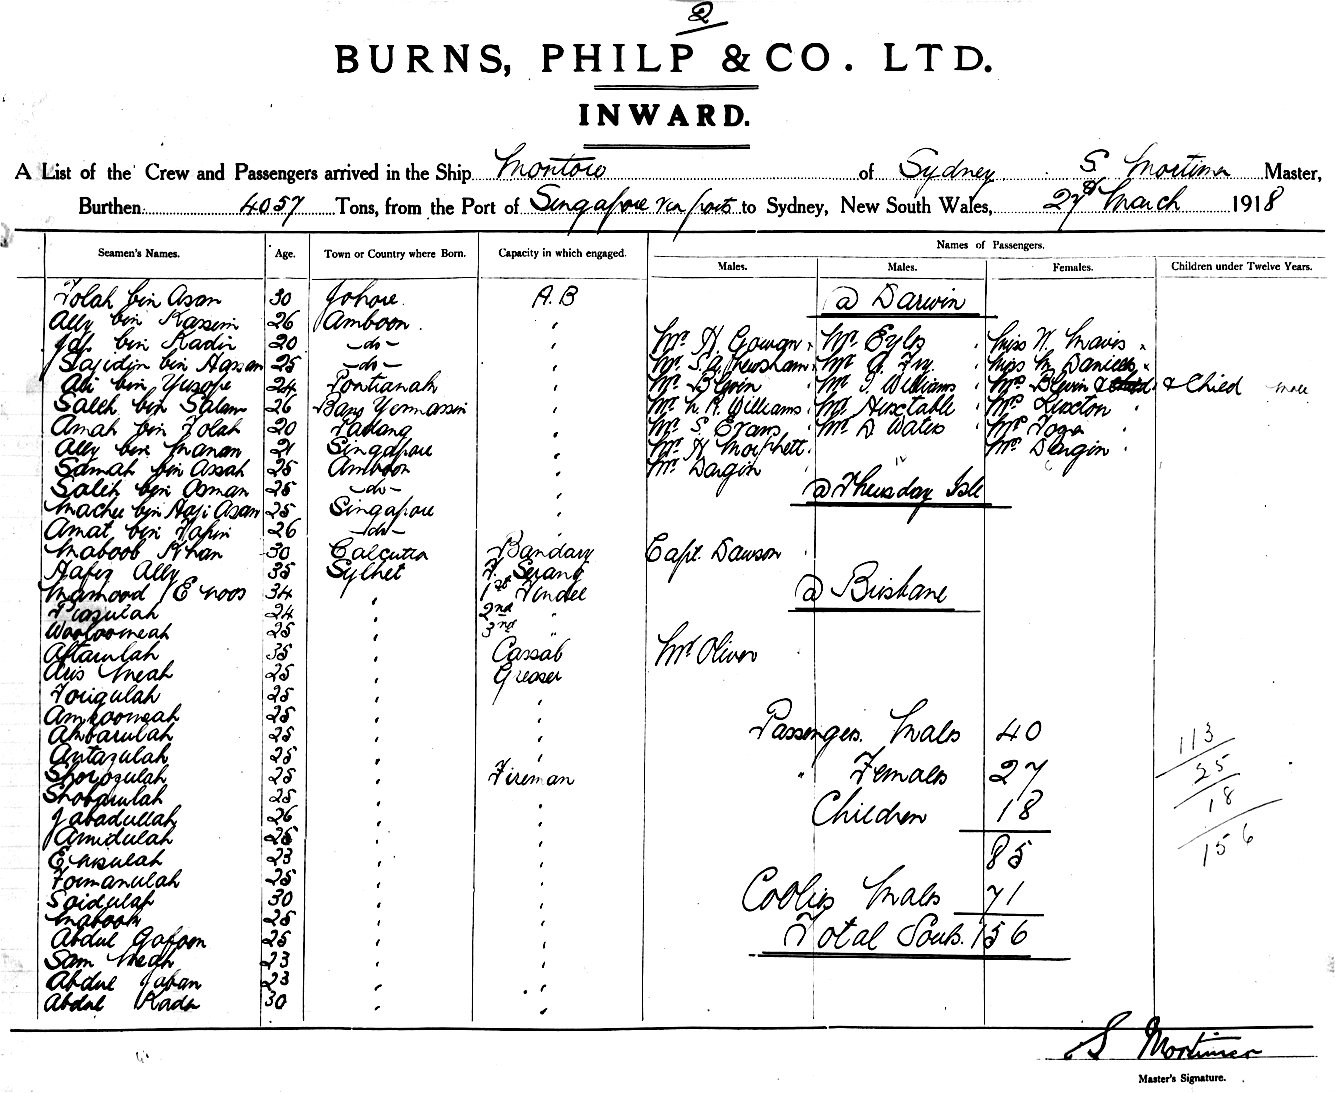 2
BURNS, PHILP & CO. LTD.
INWARD.
A List of the Crew and Passengers arrived in the Ship Montoro of Sydney S Mortimer Master,
Burthen 4057 Tons, from the Port of Singapore via ports to Sydney, New South Wales, 27th March 1918
Names of Passengers.
Seamen's Names. Age. Town or Country where Born. Capacity in which engaged. Males. Males. Females. Children under Twelve Years.
Tolah bin Asan 30 Johore A.B @ Darwin
Ally bin Kassim 26 Amboon "
bin Kadir 20 -do- " Mr H Gowan Mr Eyles Miss N. Mavis
Sajidin bin Hassan 25 -do- " Mr S.A. Mr G. Fry Miss M Daniells
Ali bin Yusope 24 Pontianah " Mr Blevin Mr J Williams Mrs Blevin & Child
Saleh bin Salam 26 " Mr L R. Williams Mr Huxtable Mrs Luxton
Amah bin Tolah 20 Padang " Mr S Evans Mr D Waters Mrs
Ally bin Manan 21 Singapore " Mr H Morphett Mrs Dargin
Samah bin Assah 25 Amboon " Mr Dargin
Salih bin Osman 25 -do- " @ Thursday Isle
Machee bin Haji Asan 25 Singapore "
Amat bin Tapin 26 -do- "
Maboob Khan 30 Calcutta Bandary Capt. Dawson
Hafiz Ally 35 Sylhet F. Serang
Mamood Enoos 34 " 1st Tindel @ Brisbane
24 " 2nd "
Woolloomeah 25 " 3rd "
Aftarulah 35 " Cassab Mr Oliver
Aris Meah 25 " Greaser
Torigulah 25 " "
Amjoomeah 25 " " Passenges. Males 40
Ambarulah 25 " " 113
Antazulah 25 " " " Females 27 25
Shorosulah 25 " Fireman
Shobdrulah 25 " " Children 18 18
Jabadullah 26 " "
Amidulah 25 " " 85 156
Ensulah 23 " "
Tomanulah 25 " " Coolies Males 71
Saidulah 30 " "
Maboob 25 " " Total Souls. 156
Abdul Gafoor 25 " "
Sam Meah 23 " "
Abdul Jaban 23 " "
Abdul Kadir 30 " "
S Mortimer
Master's Signature.